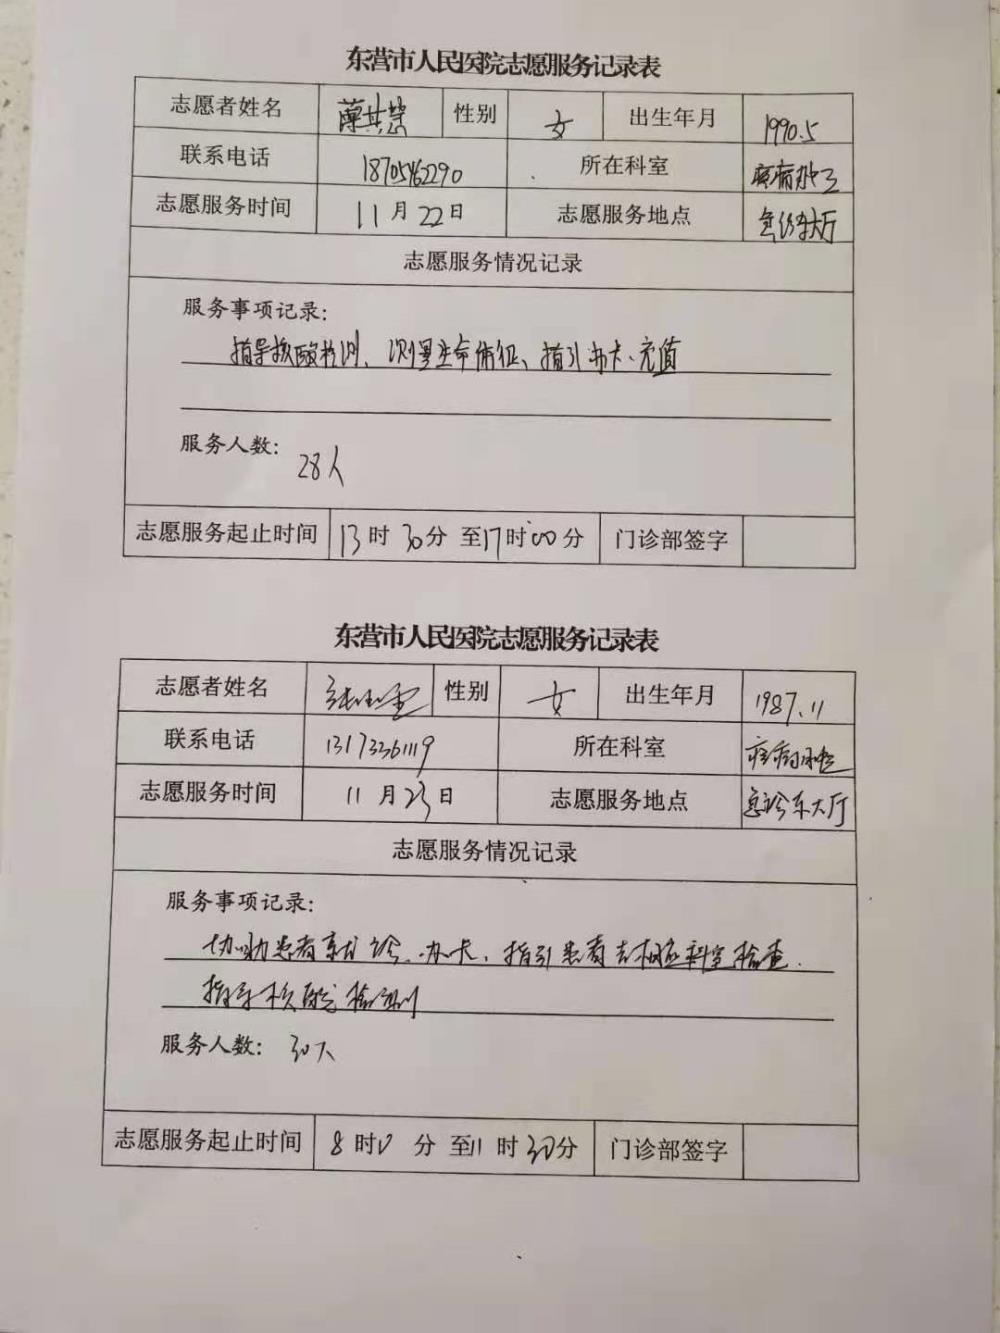 东营市人民医院志愿服务记录表
志愿者姓名 薄其慧 性别 女 出生年月 1990.5
联系电话 18705462290 所在科室 疾病办
志愿服务时间 11月22日 志愿服务地点 急诊东大厅
志愿服务情况记录
服务事项记录:
指导核酸检测、测量生命体征、指引办卡、充值
服务人数: 28人
志愿服务起止时间 13时30分 至17时00分 门诊部签字
东营市人民医院志愿服务记录表
志愿者姓名 性别 女 出生年月 1987.11
联系电话 所在科室 疾病
志愿服务时间 11月23日 志愿服务地点 急诊东大厅
志愿服务情况记录
服务事项记录:
协助患者就诊、办卡、指引患者去相应科室检查.
指导核酸检测
服务人数: 30人
志愿服务起止时间 8时0分 至11时30分 门诊部签字